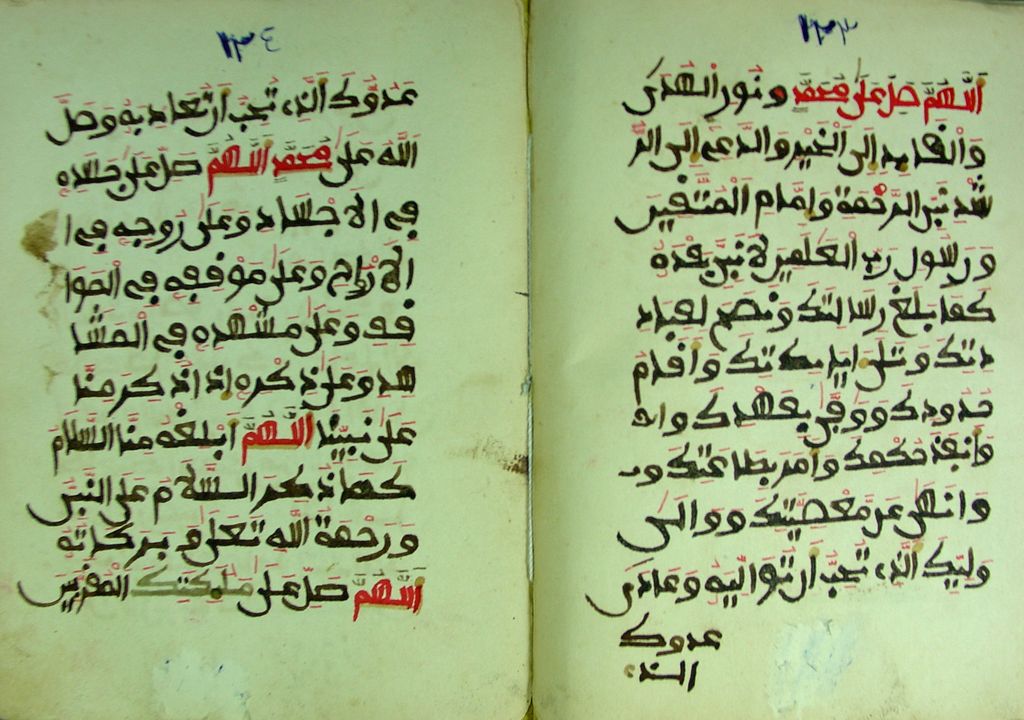 ١٣٣
اللهم صل على محمد ونور الهدى
والقايد الى الخير والدعي الى الر
شد نبي الرحمة وامام المتقين
ورسول رب العلمين لا نبي بعده
كما بلغ رسالتك ونصح لعباد
دتك وتلى ايتك واقام
حدودك ووفى بعهدك وا
وانفذ حكمك وامر بطاعتك و
وانهى عن معصيتك ووالى
وليك الذي تحب ان تواليه وعادى
عدوك
الذي
١٣٤
عدوك الذي تحب ان تعاديه وصل
الله على محمد اللهم صل على جسده
في الاجساد وعلى روحه في ا
الارواح وعلى موقفه في الموا
قف وعلى مشهده في المشا
هد وعلى ذكره اذا ذكر منا
على نبينا اللهم ابلغه منا السلام
كما ذكر السلام على النبي
ورحمة الله تعلى وبركاته
اللهم صل على ملىكتك المقربين